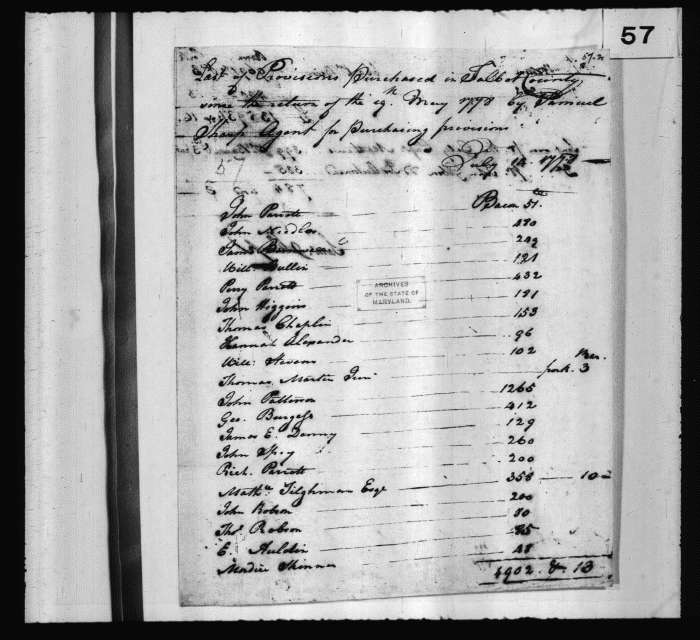 57
List of Provisions Purchased in Talbot County
since the return of the 19th May 1778 by Samuel
Sharp Agent for purchasing provisions
July 1778
Bacon
John Parrott 51.
John Needles 480
James 249
Will: Bullin 121
Perry Parrott 432
John Higgins 181
Thomas Chaplin 153
Hannah Alexander 96
Will: Stevens 102
Thomas Martin Junr pork. 3
John Pattison 1265
Geo. Burgess 412
James E. Denny 129
John 260
Rich. Parrott 200
Mathw Tilghman Esqr 358 10
John Robson 200
Thos Robson 80
E. Auldin 85
Mordie Skinner 48
4902 & 13
ARCHIVES
OF THE STATE OF
MARYLAND.